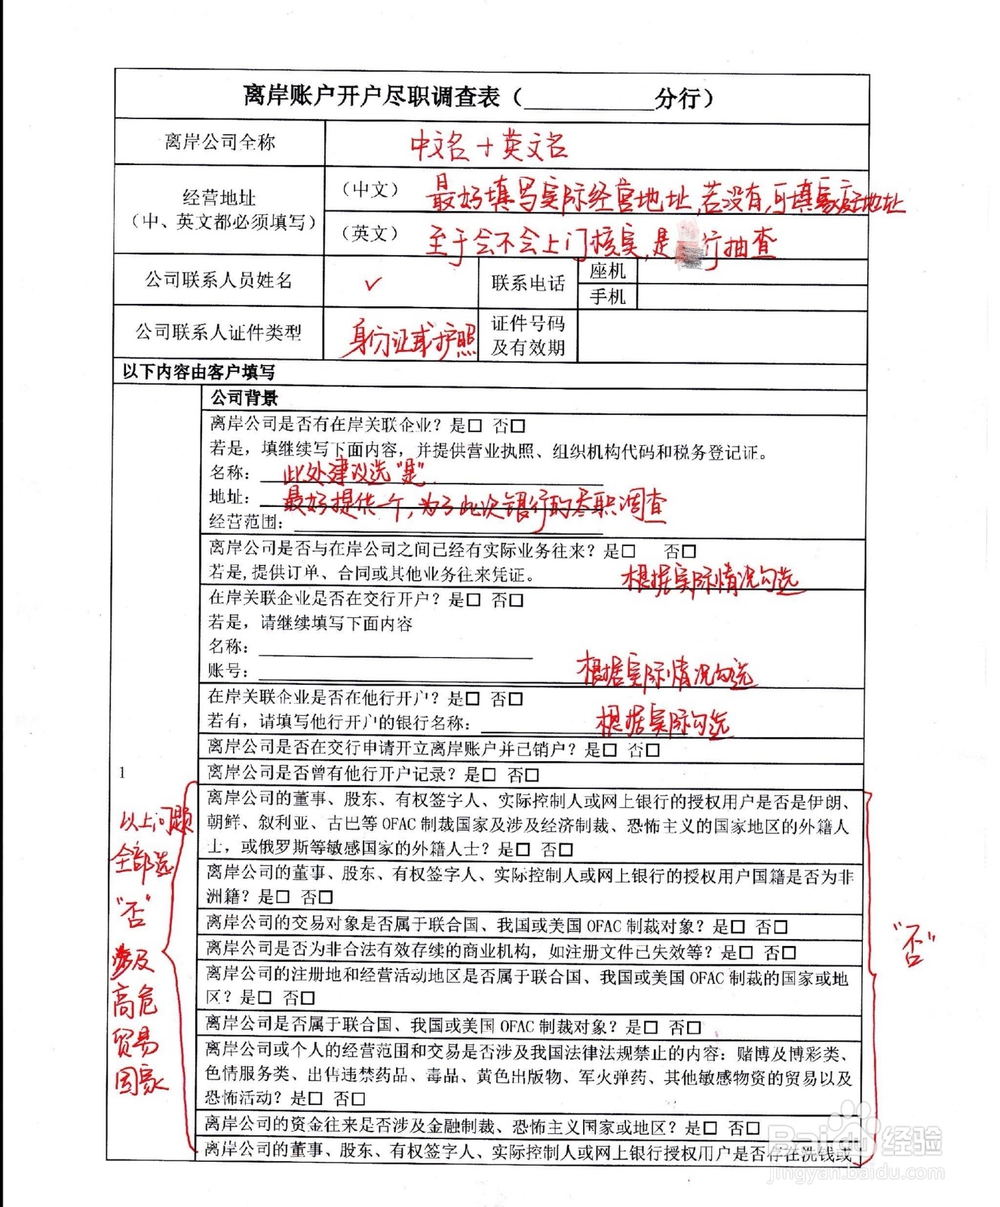 离岸账户开户尽职调查表（__________分行）
离岸公司全称
中文名+英文名
经营地址
（中、英文都必须填写）
（中文）
最好填写实际经营地址,若没有,可填家庭地址
（英文）
至于会不会上门核实,是 行抽查
公司联系人员姓名
✓
联系电话
座机
手机
公司联系人证件类型
身份证或护照
证件号码
及有效期
以下内容由客户填写
1
公司背景
离岸公司是否有在岸关联企业？是□ 否□
若是，填继续写下面内容，并提供营业执照、组织机构代码和税务登记证。
名称：
此处建议选"是".
地址：
最好提供一个,为了此次银行的尽职调查
经营范围：
离岸公司是否与在岸公司之间已经有实际业务往来？是□ 否□
若是,提供订单、合同或其他业务往来凭证。
根据实际情况勾选
在岸关联企业是否在交行开户？是□ 否□
若是，请继续填写下面内容
名称：
账号：
根据实际情况勾选
在岸关联企业是否在他行开户？是□ 否□
若有，请填写他行开户的银行名称：
根据实际勾选
离岸公司是否在交行申请开立离岸账户并已销户？是□ 否□
离岸公司是否曾有他行开户记录？是□ 否□
离岸公司的董事、股东、有权签字人、实际控制人或网上银行的授权用户是否是伊朗、
朝鲜、叙利亚、古巴等 OFAC 制裁国家及涉及经济制裁、恐怖主义的国家地区的外籍人
士，或俄罗斯等敏感国家的外籍人士？是□ 否□
离岸公司的董事、股东、有权签字人、实际控制人或网上银行的授权用户国籍是否为非
洲籍？是□ 否□
离岸公司的交易对象是否属于联合国、我国或美国 OFAC 制裁对象？是□ 否□
离岸公司是否为非合法有效存续的商业机构，如注册文件已失效等？是□ 否□
离岸公司的注册地和经营活动地区是否属于联合国、我国或美国 OFAC 制裁的国家或地
区？是□ 否□
离岸公司是否属于联合国、我国或美国 OFAC 制裁对象？是□ 否□
离岸公司或个人的经营范围和交易是否涉及我国法律法规禁止的内容：赌博及博彩类、
色情服务类、出售违禁药品、毒品、黄色出版物、军火弹药、其他敏感物资的贸易以及
恐怖活动？是□ 否□
离岸公司的资金往来是否涉及金融制裁、恐怖主义国家或地区？是□ 否□
离岸公司的董事、股东、有权签字人、实际控制人或网上银行授权用户是否存在洗钱或
以上问题
全部选
"否"
涉及
高危
贸易
国家
"否"
Baidu经验
jingyan.baidu.com